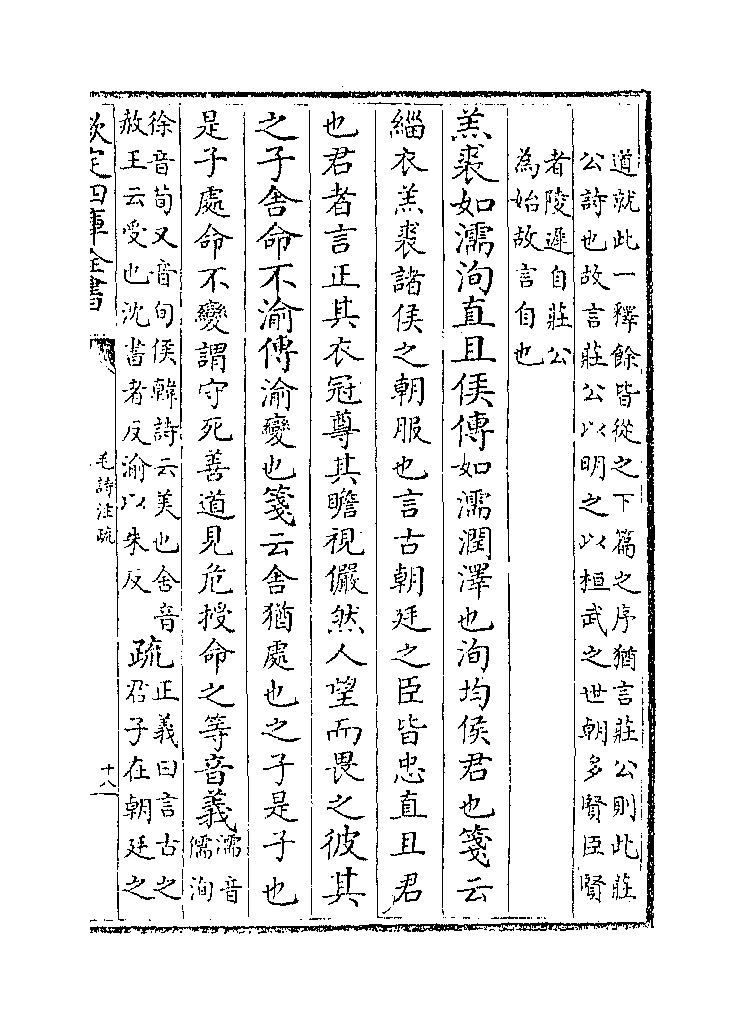 道就此一釋餘皆從之下篇之序猶言莊公則此莊
公詩也故言莊公以明之以桓武之世朝多賢臣賢
者陵遲自莊公
為始故言自也
羔裘如濡洵直且侯傳如濡潤澤也洵均侯君也箋云
緇衣羔裘諸侯之朝服也言古朝廷之臣皆忠直且君
也君者言正其衣冠尊其瞻視儼然人望而畏之彼其
之子舍命不渝傳渝變也箋云舍猶處也之子是子也
是子處命不變謂守死善道見危授命之等音義濡音
儒洵
徐音荀又音旬侯韓詩云美也舍音
赦王云受也沈書者反渝以朱反
疏正義曰言古之
君子在朝廷之
欽定四庫全書
毛詩注疏
十八